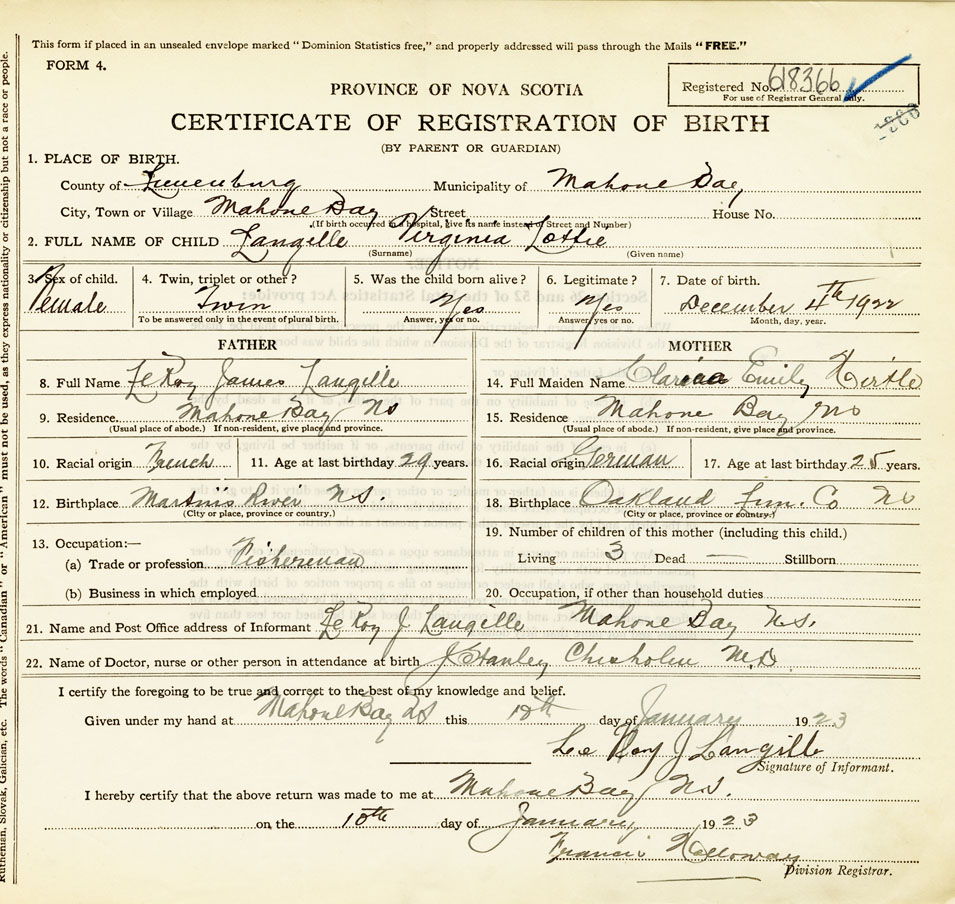 This form if placed in an unsealed envelope marked “ Dominion Statistics free,” and properly addressed will pass through the Mails “FREE.”
FORM 4.
Registered No. 618366
For use of Registrar General only.
PROVINCE OF NOVA SCOTIA
CERTIFICATE OF REGISTRATION OF BIRTH
(BY PARENT OR GUARDIAN)
1. PLACE OF BIRTH.
County of Lunenburg Municipality of Mahone Bay
City, Town or Village Mahone Bay Street House No.
(If birth occurred in a hospital, give its name instead of Street and Number)
2. FULL NAME OF CHILD Langille Virginia Lottie
(Surname) (Given name)
3. Sex of child. 4. Twin, triplet or other? 5. Was the child born alive? 6. Legitimate? 7. Date of birth.
Female Twin Yes Yes December 4th 1922
To be answered only in the event of plural birth. Answer, yes or no. Answer, yes or no. Month, day, year.
FATHER
8. Full Name LeRoy James Langille
9. Residence. Mahone Bay NS
(Usual place of abode.) If non-resident, give place and province.
10. Racial origin French 11. Age at last birthday 29 years.
12. Birthplace Martin's River N.S.
(City or place, province or country.)
13. Occupation:—
(a) Trade or profession Fisherman
(b) Business in which employed
MOTHER
14. Full Maiden Name Emily Hirtle
15. Residence Mahone Bay NS
(Usual place of abode.) If non-resident, give place and province.
16. Racial origin German 17. Age at last birthday 25 years.
18. Birthplace Oakland Lun. Co NS
(City or place, province or country.)
19. Number of children of this mother (including this child.)
Living 3 Dead — Stillborn
20. Occupation, if other than household duties
21. Name and Post Office address of Informant LeRoy J Langille Mahone Bay N.S.
22. Name of Doctor, nurse or other person in attendance at birth J Stanley Chisholm M.D.
I certify the foregoing to be true and correct to the best of my knowledge and belief.
Given under my hand at Mahone Bay NS this 10th day of January 1923
Lee Roy J Langille
Signature of Informant.
I hereby certify that the above return was made to me at Mahone Bay N.S.
on the 10th day of January 1923
Francis Holloway
Division Registrar.
Ruthenian, Slovak, Galician, etc. The words “ Canadian ” or “ American ” must not be used, as they express nationality or citizenship but not a race or people.